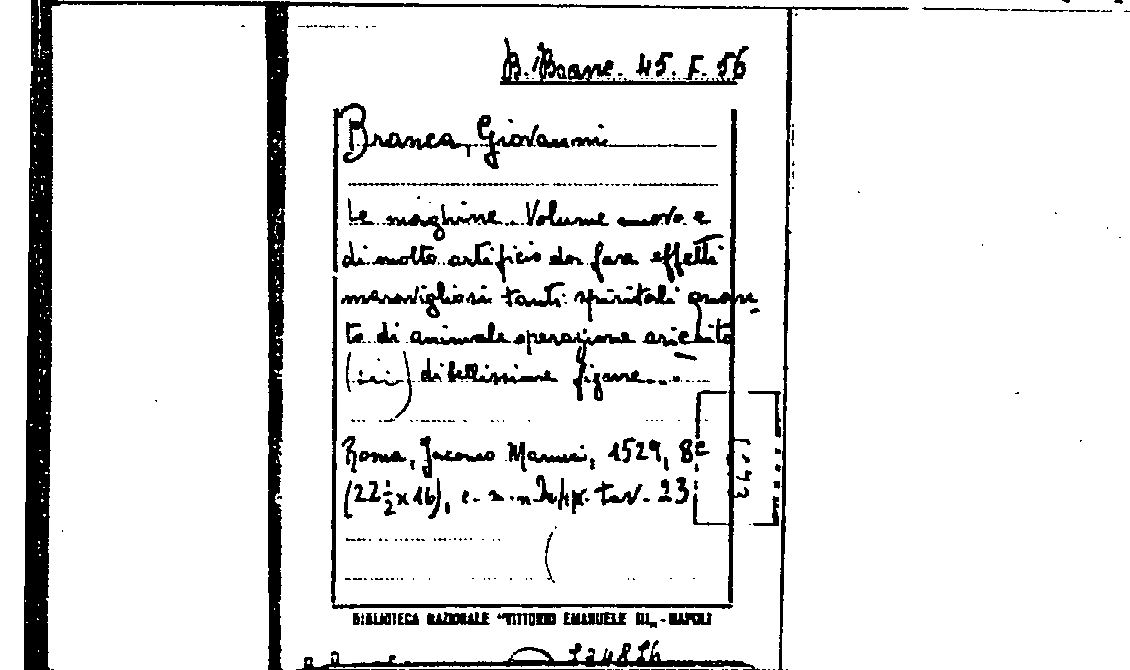 B. Branc. 45. F. 56
Branca, Giovanni
Le maghine. Volume nuovo e
di molto artificio da fare effetti
maravigliosi tanti spiritali quan-
to di animale operazione arichito
(sic) di bellissime figure...
Roma, Jacomo Manuci, 1529, 8º
(22½ x 16), c. tav. 23
BIBLIOTECA NAZIONALE "VITTORIO EMANUELE III" - NAPOLI